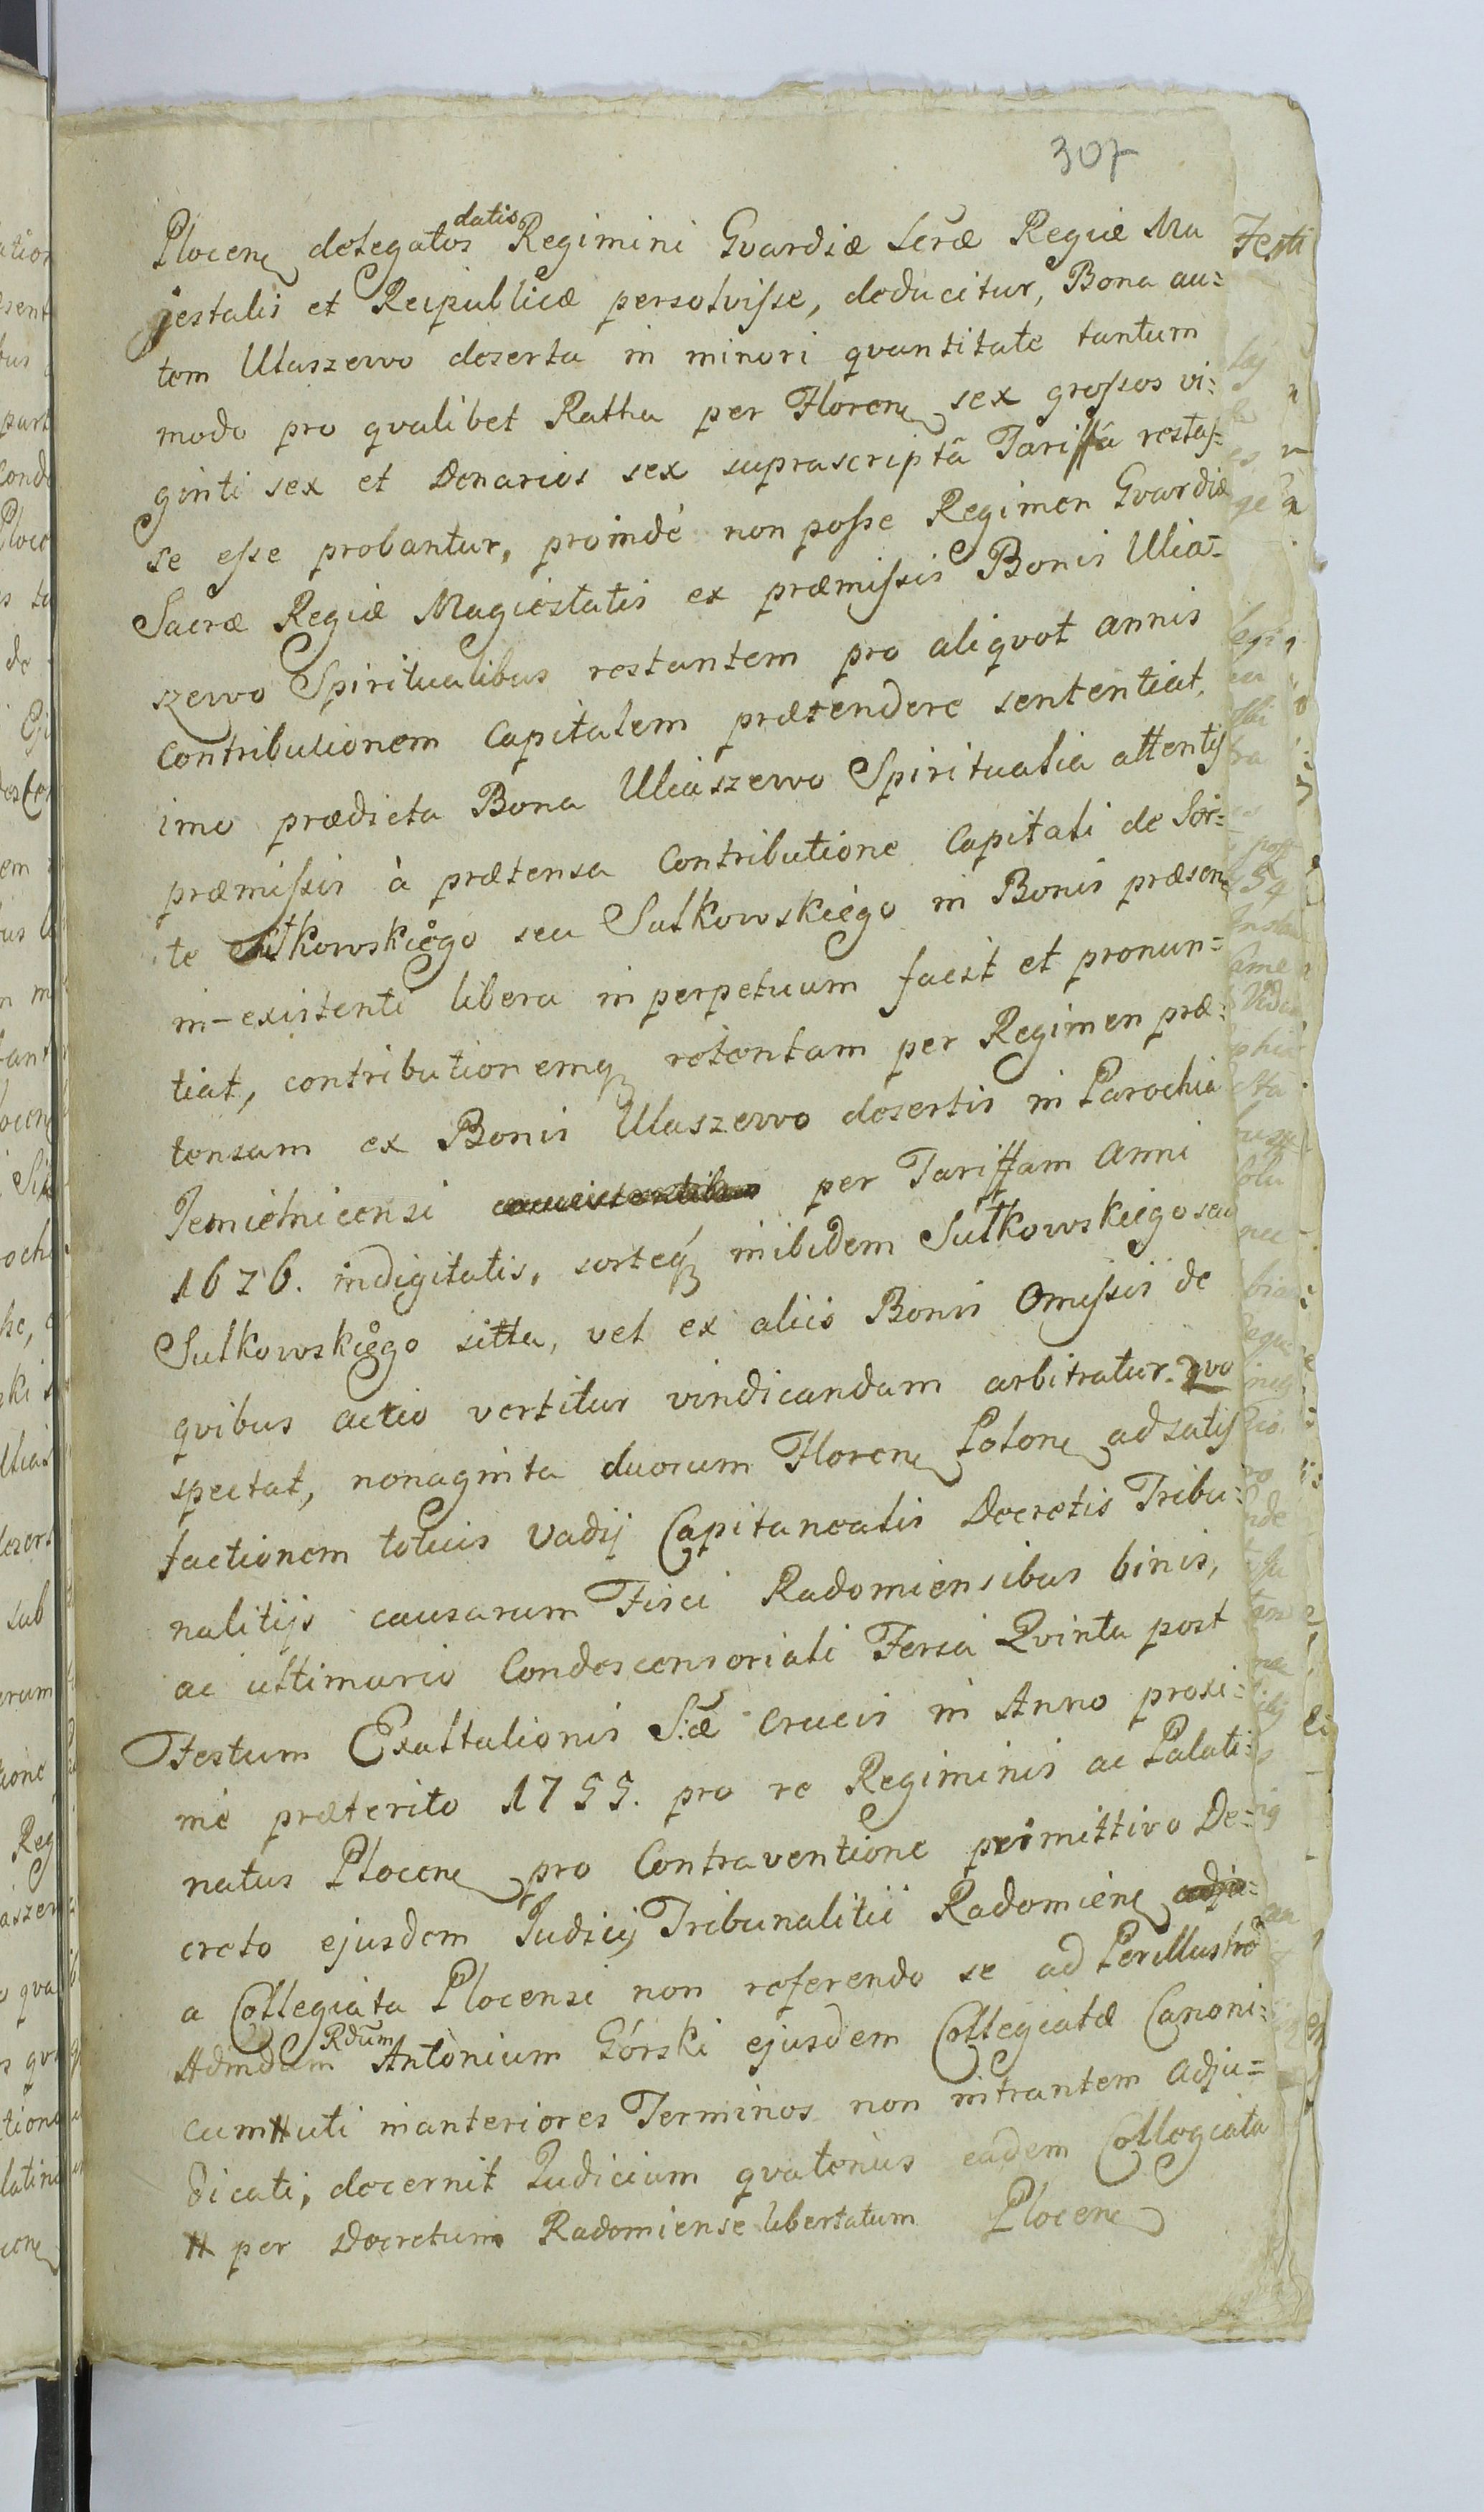 307
Plocen delegatos datis Regimini Gvardiæ Scræ Regiæ Ma
jestatis et Reipublicæ persolvisse, deducitur, Bona au=
tem Ulaszewo deserta in minori qvantitate tantum
modo pro qvalibet Ratha per Floren sex grossos vi=
ginti sex et Denarios sex suprascriptâ Tariffâ restas=
se esse probantur, proindé non posse Regimen Gvardiæ
Sacræ Regiæ Magiestatis ex præmissis Bonis Ulia=
szewo Spiritualibus restantem pro aliqvot annis
Contributionem Capitalem prætendere sententiat,
imo prædicta Bona Uliaszewo Spiritualia attentis
præmissis à prætensa Contributione Capitali de Sor=
te Sutkowskiego seu Sulkowskiégo in Bonis præsen
in-existenti libera in perpetuum facit et pronun=
tiat, contributionemq retentam per Regimen præ=
tensam ex Bonis Ulaszewo desertis in Parochia
Jemielnicensi per Tariffam Anni
1676. indigitatis, sorteq inibidem Sutkowskiego seu
Sulkowskiego sitta, vel ex aliis Bonis Omissis de
qvibus actio vertitur vindicandam arbitratur. Qvo
spectat, nonaginta duorum Floren Polon ad satis
factionem totius Vadij Capitanealis Decretis Tribu=
nalitijs causarum Fisci Radomiensibus binis,
ac ultimario Condescensoriali Feria Qvinta post
Festum Exaltationis S:æ Crucis in Anno proxi=
mé præterito 1755. pro re Regiminis ac Palati=
natus Plocen pro Contraventione primittivo De=
creto ejusdem Iudicij Tribunalitii Radomien
a Collegiata Plocensi non referendo se ad Perillustre
Admdum Rdum Antonium Górski ejusdem Collegiatæ Canoni=
cum # uti in anteriores Terminos non intrantem adju=
dicati, decernit Iudicium qvatenus eadem Collegiata
# per Decretum Radomiense libertatum Plocen